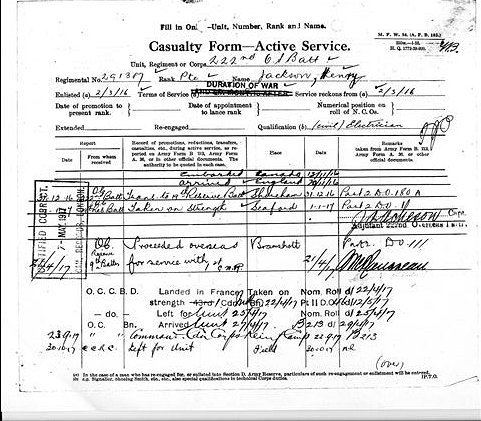 Fill in Only—Unit, Number, Rank and Name.
M. F. W. 54. (A. F. B. 103.)
H. Q. 1772-39-920.
Casualty Form—Active Service.
Unit, Regiment or Corps 222nd O.S. Batt
Regimental No. 291387 Rank Pte Name Jackson, Henry
DURATION OF WAR
Enlisted (a) 2/3/16 Terms of Service (a) Service reckons from (a) 2/3/16
Date of promotion to present rank. Date of appointment to lance rank Numerical position on roll of N. C. Os.
Extended Re-engaged Qualification (b) Civil/Electrician
Report
Date From whom received
Record of promotions, reductions, transfers, casualties, etc., during active service, as reported on Army Form B. 213, Army Form A. 36, or in other official documents. The authority to be quoted in each case.
Place
Date
Remarks taken from Army Form B. 213, Army Form A. 36, or other official documents.
Embarked Canada
arrived England
31.12.16 Trans. to 19th Reserve Batt Shoreham 31.12.16 Part 2 D.O. 180 A
Res Batt Taken on Strength Seaford 1-1-17 Part 2 D.O.
Capt.
Adjutant 222nd O
CERTIFIED CORRECT.
7-MAY 1917
LONDON.
/4/17 O.C. Reserve Battn Proceeded overseas for service with 1st C.M.R. Bramshott 21/4/17 Part D.O 111
O. C. C. B. D. Landed in France, Taken on strength 22/4/17 Nom. Roll d/ 22/4/17
Pt II D.O. d/ 12/5/17
— do. — Left for Unit 25/4/17 Nom. Roll d/ 25/4/17
O. C. Bn. Arrived Unit 27/4/17 B 213 d/ 29/4/17
23.9.17 " Command Cdn Corps Reinf Camp 22.9.17 B 213
30.10.17 C.C.R.C. Left for Unit Field 30.10.17 n.r.
(over)
(a) In the case of a man who has re-engaged for, or enlisted into Section D, Army Reserve, particulars of such re-engagement or enlistment will be entered.
(b) e.g. Signaller, Shoeing Smith, etc., etc., also special qualifications in technical Corps duties.
[P.T.O.